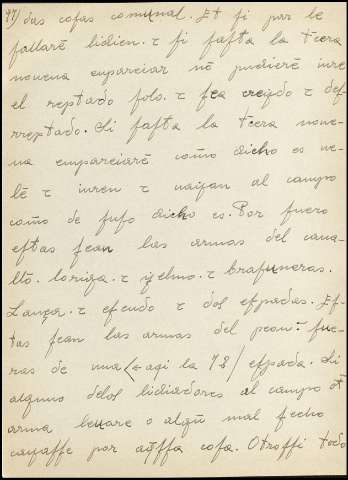 77) das cosas comunal. Et si par le
fallaré lidien. τ si fasta la tc̃era
nouena enpareiar nõ pudieré inre
el reptado solo. τ sea creydo τ def
rreptado. Si fasta la tc̃era noue-
na enpareiaré como dicho es ue-
lé τ inren τ uaiſan al campo
como de suso dicho es. Por fuero
estas sean las armas del caua-
llo. loriga. τ yelmo. τ brafuneras.
Lança. τ escudo τ dos espadas. Es-
tas sean las armas del peon: fue-
ras de una (← aqi la 78/ espada. Si
alguno delos lidiadores al campo ot̃
arma leuare o algũ mal fecho
cayasse por aq̃ssa cosa. Otrossi todo